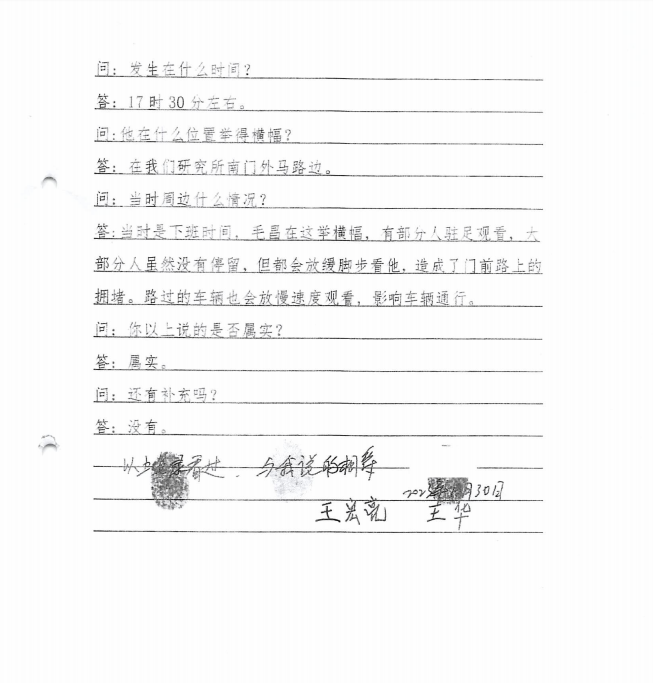 问：发生在什么时间？
答：17时30分左右。
问：他在什么位置举得横幅？
答：在我们研究所南门外马路边。
问：当时周边什么情况？
答：当时是下班时间，毛昌在这举横幅，有部分人驻足观看，大
部分人虽然没有停留，但都会放缓脚步看他，造成了门前路上的
拥堵。路过的车辆也会放慢速度观看，影响车辆通行。
问：你以上说的是否属实？
答：属实。
问：还有补充吗？
答：没有。
以上 看过，与我说的相符
30日
王宏亮 王华